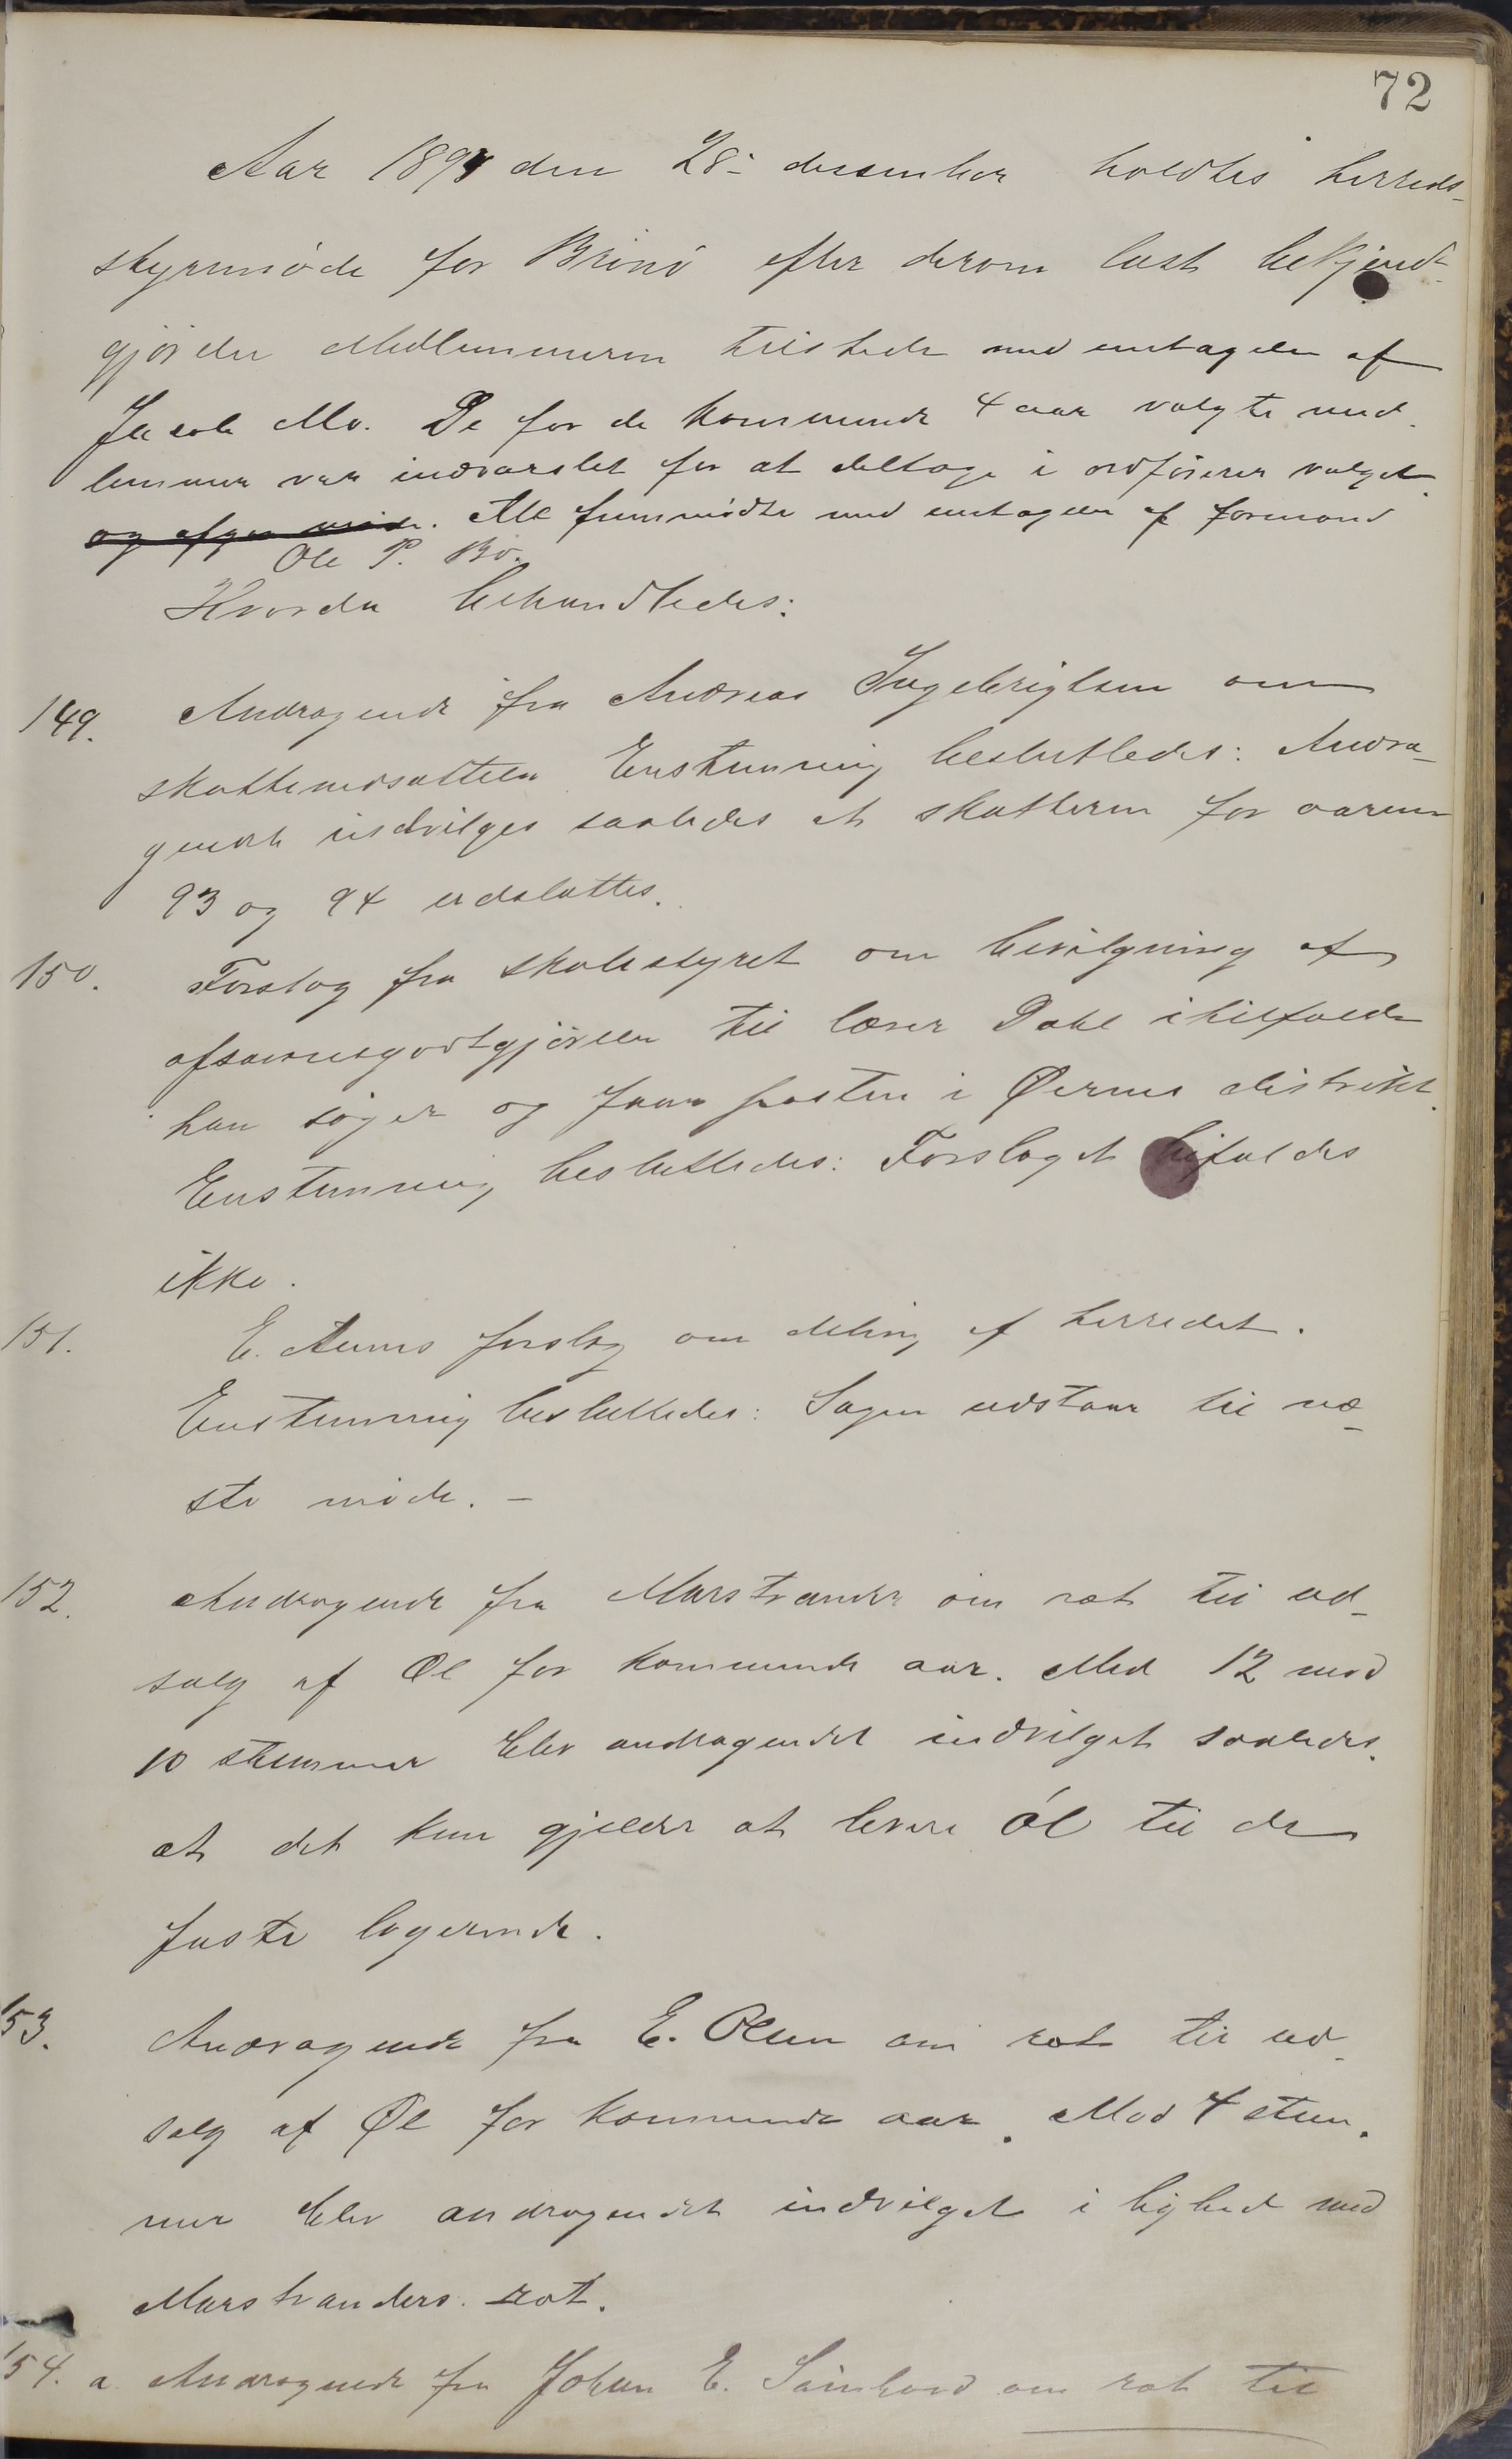 72
Aar 1894 den 28- desember holdtes herreds-
styrmøde for Brønø efter derom læst bekjend-
gjørelse Medlemmerne tilstede med undtagelse af
Jacob Mo. De for de kommende 4 aar valgte med-
lemmer var indvarslet for at deltage i ordfører valget
og afgav møde. Alle fremmødte med undtagelse af formand
Ole P. Bø.
Hvorda behandledes:
149. Andragende fra Andreas Ingebrigtsen om
skattenedsættelse Enstemmig besluttedes: Andra-
gendet indvilges saaledes at skatterne for aarene
93 og 94 udslettes.
150. Forslag fra skolestyret om bevilgning af
afsavnsgodtgjørelse til lærer Dahl i tilfælde
han søger og faar posten i Øernes distrikt.
Enstemmig besluttedes: Forslaget bifaldes
ikke.
151. E. Aunes forslag om deling af herredet.
Enstemmig besluttedes: Sagen udstaar til næ-
ste møde. -
152. Andragende fra Marstrander om ret til ud-
salg af Øl for kommende aar. Med 12 mod
10 stemmer blev andragendet indvilget saaledes
at det kun gjelder at levere Øl til de
faste logerende.
153. Andragende fra E. Olsen om ret til ud-
salg af Øl for kommende aar. Mod 4 stem-
mer blev andragendet indvilget i lighed med
Marstranders ret.
154. a Andragende fra Johan E. om ret til